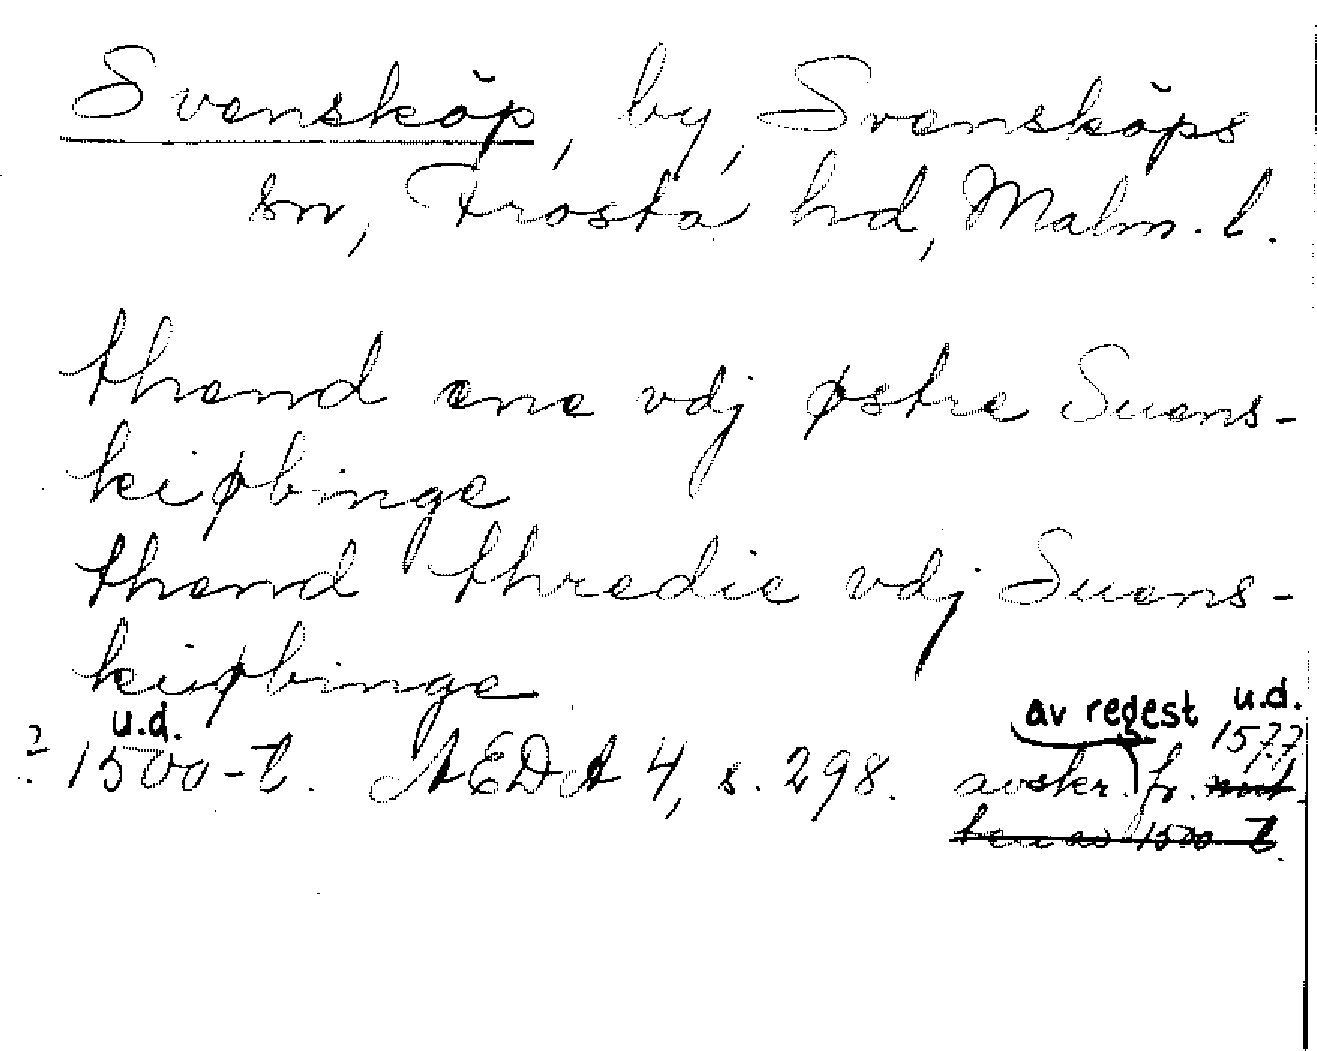 Svensköp, by, Svensköps
sn, Frosta hd, Malm. l.
thend ene vdj østre Suens-
kiøbinge
thend thredie vdj Suens-
kiøbinge
u.d.
? 1500-t. AEDA 4, s. 298. avskr. fr.
av regest u.d.
1577
1500-t.